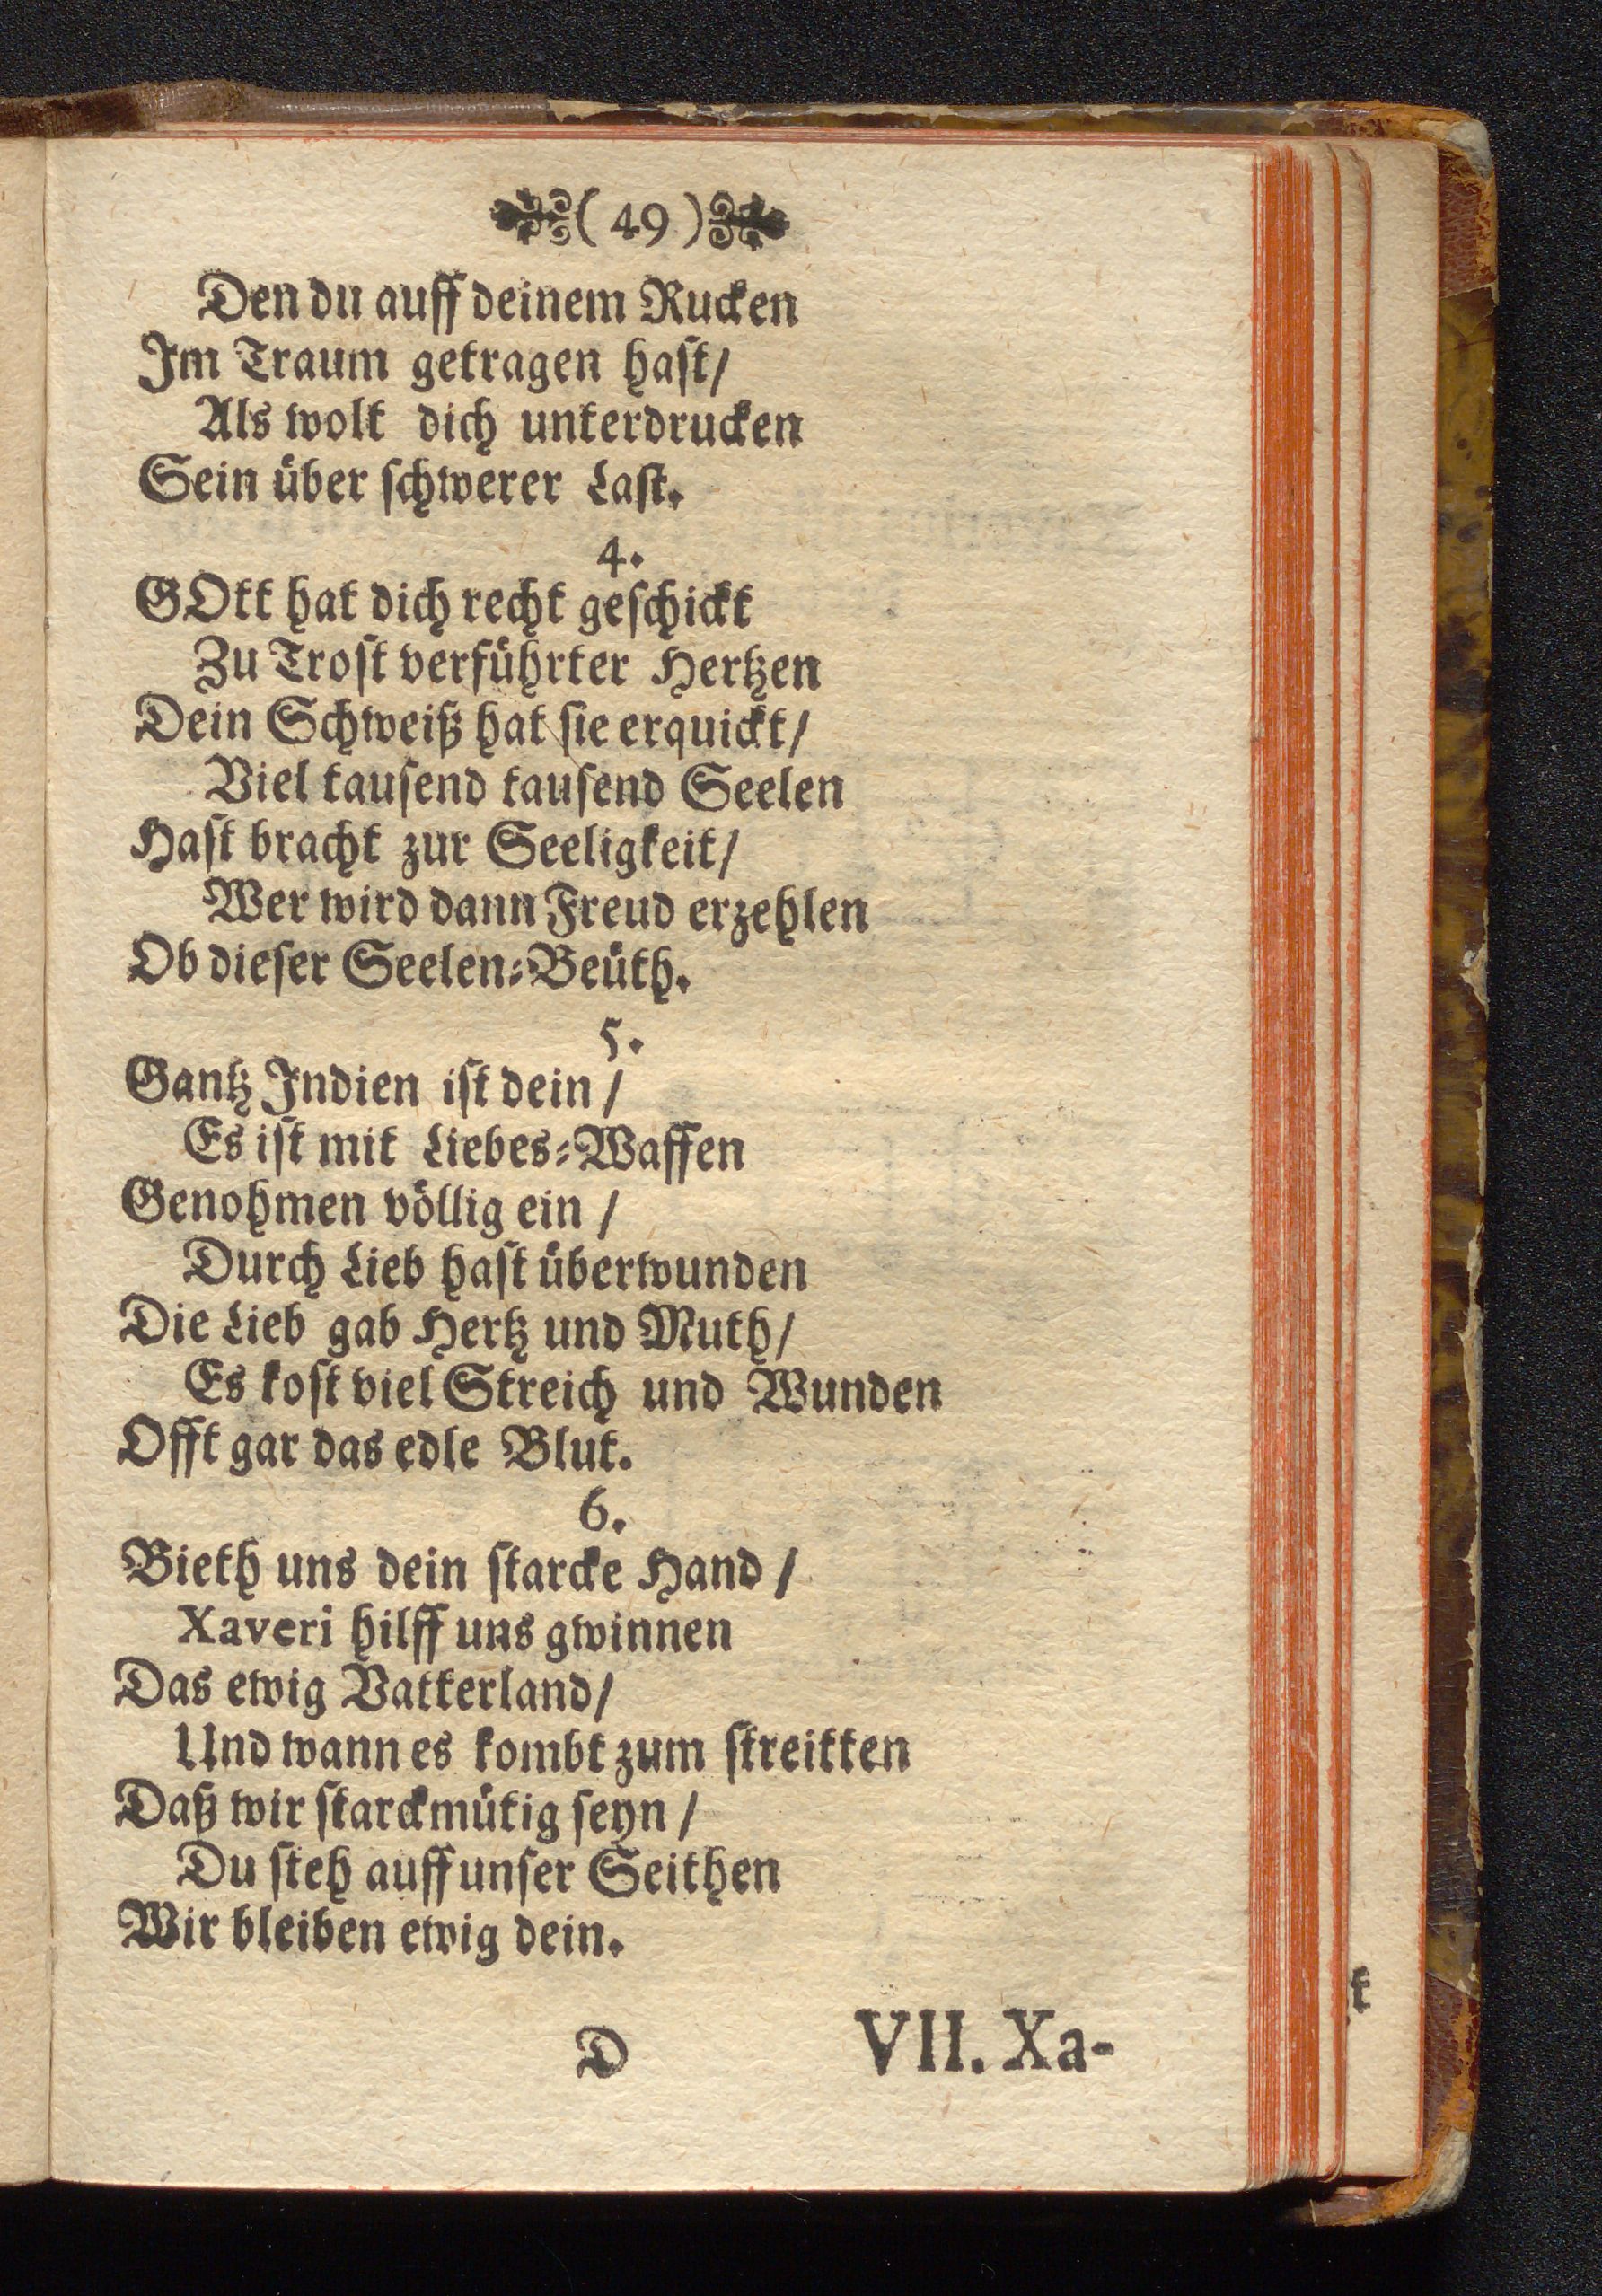 ( 49 )
Den du auff deinem Rucken
Im Traum getragen hast/
Als wolt dich unterdrucken
Sein über schwerer Last.
4.
GOtt hat dich recht geschickt
Zu Trost verführter Hertzen
Dein Schweiß hat sie erquickt/
Viel tausend tausend Seelen
Hast bracht zur Seeligkeit/
Wer wird dann Freud erzehlen
Ob dieser Seelen-Beüth.
5.
Gantz Indien ist dein /
Es ist mit Liebes-Waffen
Genohmen völlig ein /
Durch Lieb hast überwunden
Die Lieb gab Hertz und Muth/
Es kost viel Streich und Wunden
Offt gar das edle Blut.
6.
Bieth uns dein starcke Hand /
Xaveri hilff uns gwinnen
Das ewig Vatterland/
Und wann es kombt zum streitten
Daß wir starckmütig seyn /
Du steh auff unser Seithen
Wir bleiben ewig dein.
D VII. Xa-
t